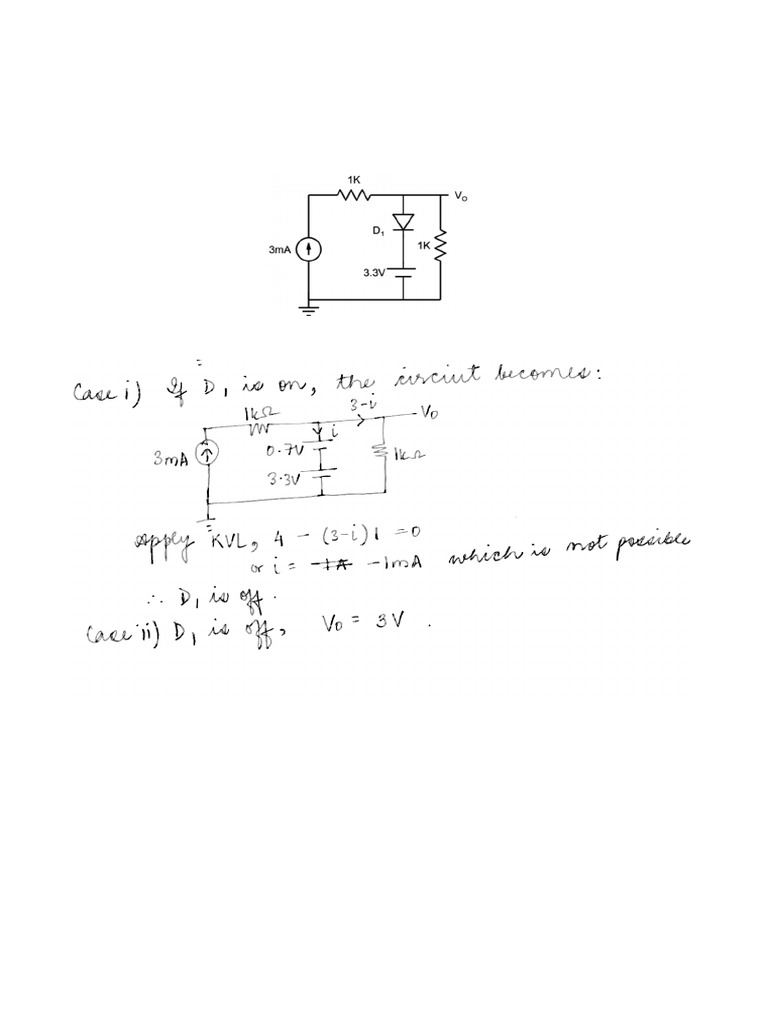 1K
Vo
D1
1K
3mA
3.3V
=
Case i) If D1 is on, the circiut becomes:
1kΩ
3-i
Vo
i
0.7V
3mA
1kΩ
3.3V
Apply KVL, 4 - (3-i)1 = 0
or i = -1A -1mA which is not possible
∴ D1 is off.
Case ii) D1 is off, Vo = 3V.